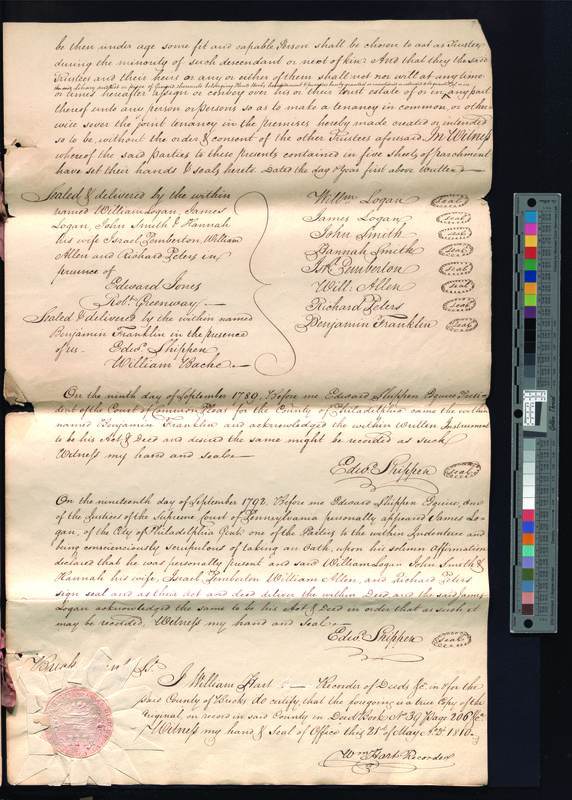 be then under age some fit and capable Person shall be chosen to act as Trustee
during the minority of such descendant or next of kin: And that they the said
Trustees and their heirs or any or either of them shall not nor will at any time
or times hereafter assign or convey over his or their trust estate of or in any part
thereof unto any person or persons so as to make a tenancy in common, or other-
wise sever the joint tenancy in the premises hereby made created or intended
so to be, without the order & consent of the other Trustees aforesaid In Witness
whereof the said parties to these presents contained in five sheets of parchment
have set their hands & seals hereto Dated the day & year first above Written
Sealed & delivered by the within
named William Logan, James
Logan, John Smith & Hannah
his wife Israel Pemberton, William
Allen and Richard Peters in
presence of
Edward Jones
Robt. Greenway
Sealed & delivered by the within named
Benjamin Franklin in the presence
of us Edwd. Shippen
William Bache
Willm Logan Seal
James Logan Seal
John Smith Seal
Hannah Smith Seal
Isr. Pemberton Seal
Will: Allen Seal
Richard Peters Seal
Benjamin Franklin Seal
On the ninth day of September 1789, Before me Edward Shippen Esquire Presi-
dent of the Court of Common Pleas for the County of Philadelphia came the within
named Benjamin Franklin and acknowledged the within Written Instrument
to be his Act & Deed and desired the same might be recorded as such
Witness my hand and seal
Edwd. Shippen Seal
On the nineteenth day of September 1792, Before me Edward Shippen Esquire, one
of the Justices of the Supreme Court of Pennsylvania personally appeared James Lo-
gan, of the City of Philadelphia Gent: one of the Parties to the within Indenture and
being consciensiously scrupulous of taking an Oath, upon his solemn Affirmation
declared that he was personally present and said William Logan John Smith &
Hannah his wife, Israel Pemberton William Allen, and Richard Peters
sign seal and as their act and deed deliver the within Deed and the said James
Logan acknowledged the same to be his Act & Deed in order that as such it
may be recorded, Witness my hand and Seal
Edwd. Shippen Seal
Bucks
I William Hart Recorder of Deeds &c. in & for the
said County of Bucks do certify that the foregoing is a true Copy of the
Original, on record in said County in Deed Book No. 39 Page 206 &c
Witness my hand & Seal of Office this 21st of May A.D. 1810
Wm Hart Recorder